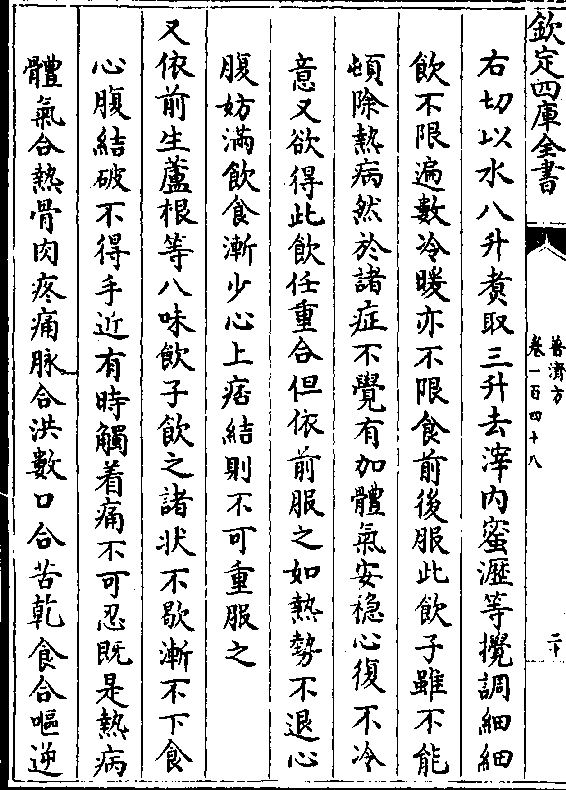 欽定四庫全書
普濟方
卷一百四十八
二十
右切以水八升煑取三升去滓内蜜瀝等攪調細細
飲不限遍數冷暖亦不限食前後服此飲子雖不能
頓除熱病然於諸症不覺有加體氣安穏心復不冷
意又欲得此飲任重合但依前服之如熱勢不退心
腹妨滿飲食漸少心上痞結則不可重服之
又依前生蘆根等八味飲子飲之諸状不歇漸不下食
心腹結破不得手近有時觸着痛不可忍既是熱病
體氣合熱骨肉疼痛脉合洪數口合苦乾食合嘔逆